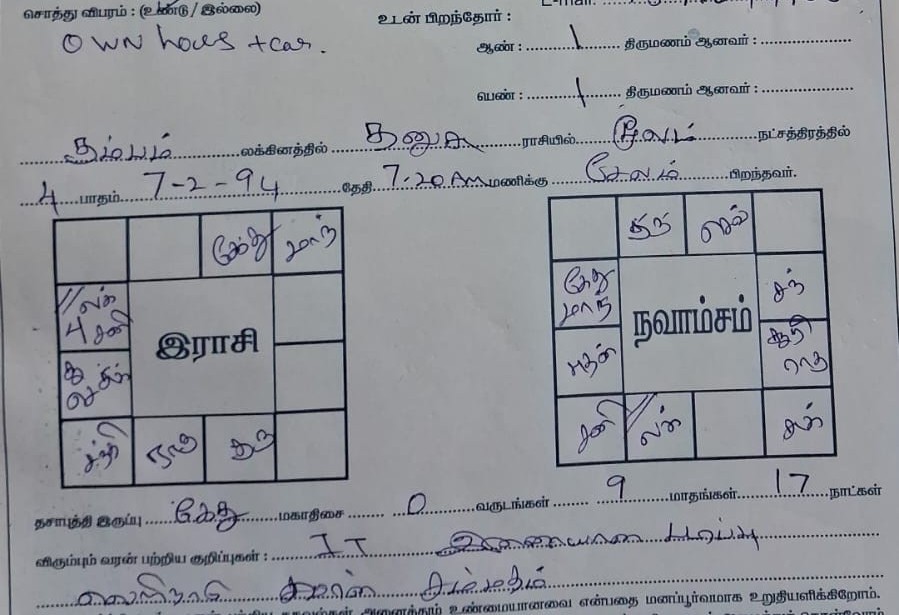 சொத்து விபரம் : (உண்டு / இல்லை)
E-mail:
OWN house + car.
உடன் பிறந்தோர் :
ஆண் : 1 திருமணம் ஆனவர் :
பெண் : 1 திருமணம் ஆனவர் :
கும்பம் லக்கினத்தில் தனுசு ராசியில் மூலம் நட்சத்திரத்தில்
4 பாதம் 7-2-94 தேதி 7.20 AM மணிக்கு சேலம் பிறந்தவர்.
கேது மாந்
லக் சனி
இராசி
சந் ராகு குரு
குரு
கேது மாந்
நவாம்சம்
சந்
ராகு
புதன்
சனி லக்
தசாபுத்தி இருப்பு கேது மகாதிசை 0 வருடங்கள் 9 மாதங்கள் 17 நாட்கள்
விரும்பும் வரன் பற்றிய குறிப்புகள் : IT இணையான படிப்பு
வெளிநாடு சம்மதம்
அனைத்தும் உண்மையானவை என்பதை மனப்பூர்வமாக உறுதியளிக்கிறோம்.